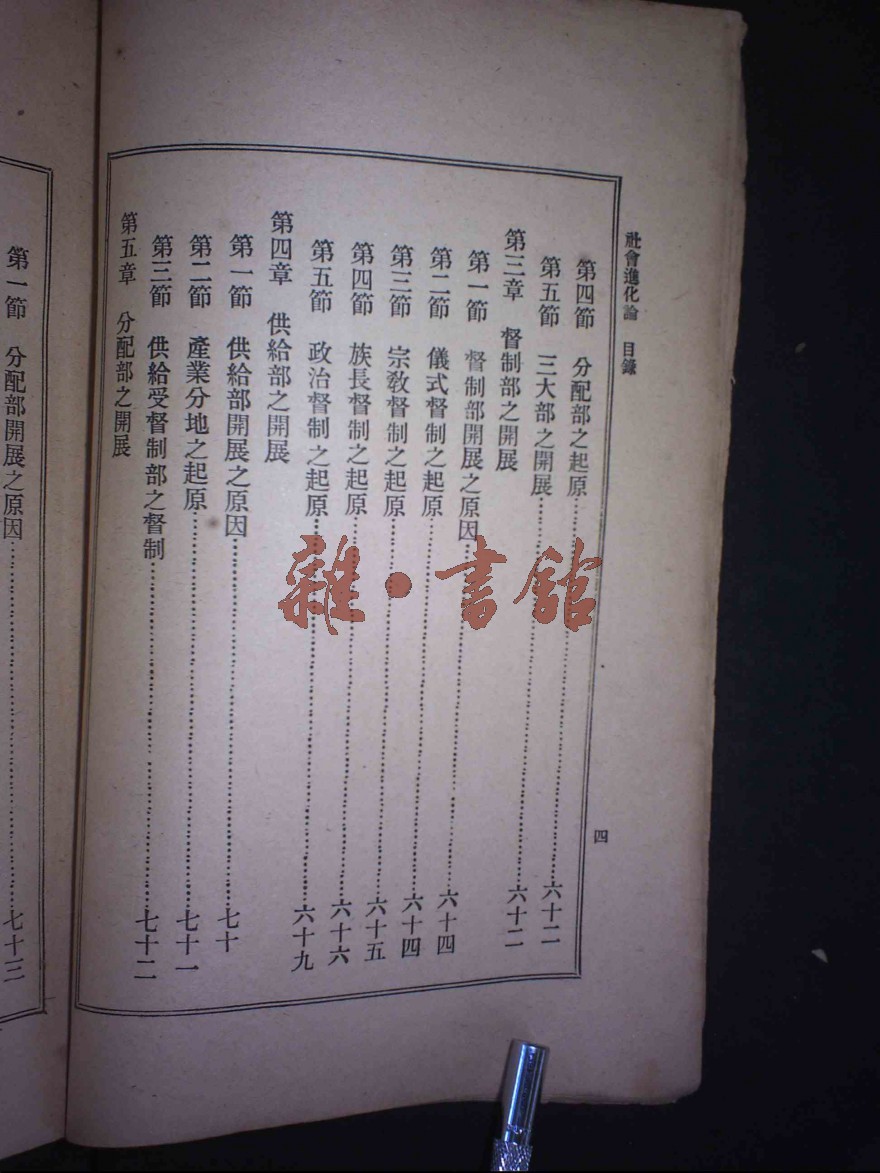 社會進化論 目錄
四
第四節 分配部之起原……六十二
第五節 三大部之開展……六十二
第三章 督制部之開展
第一節 督制部開展之原因……六十四
第二節 儀式督制之起原……六十四
第三節 宗教督制之起原……六十五
第四節 族長督制之起原……六十六
第五節 政治督制之起原……六十九
第四章 供給部之開展
第一節 供給部開展之原因……七十
第二節 產業分地之起原……七十一
第三節 供給受督制部之督制……七十二
第五章 分配部之開展
第一節 分配部開展之原因……七十三
雜·書館